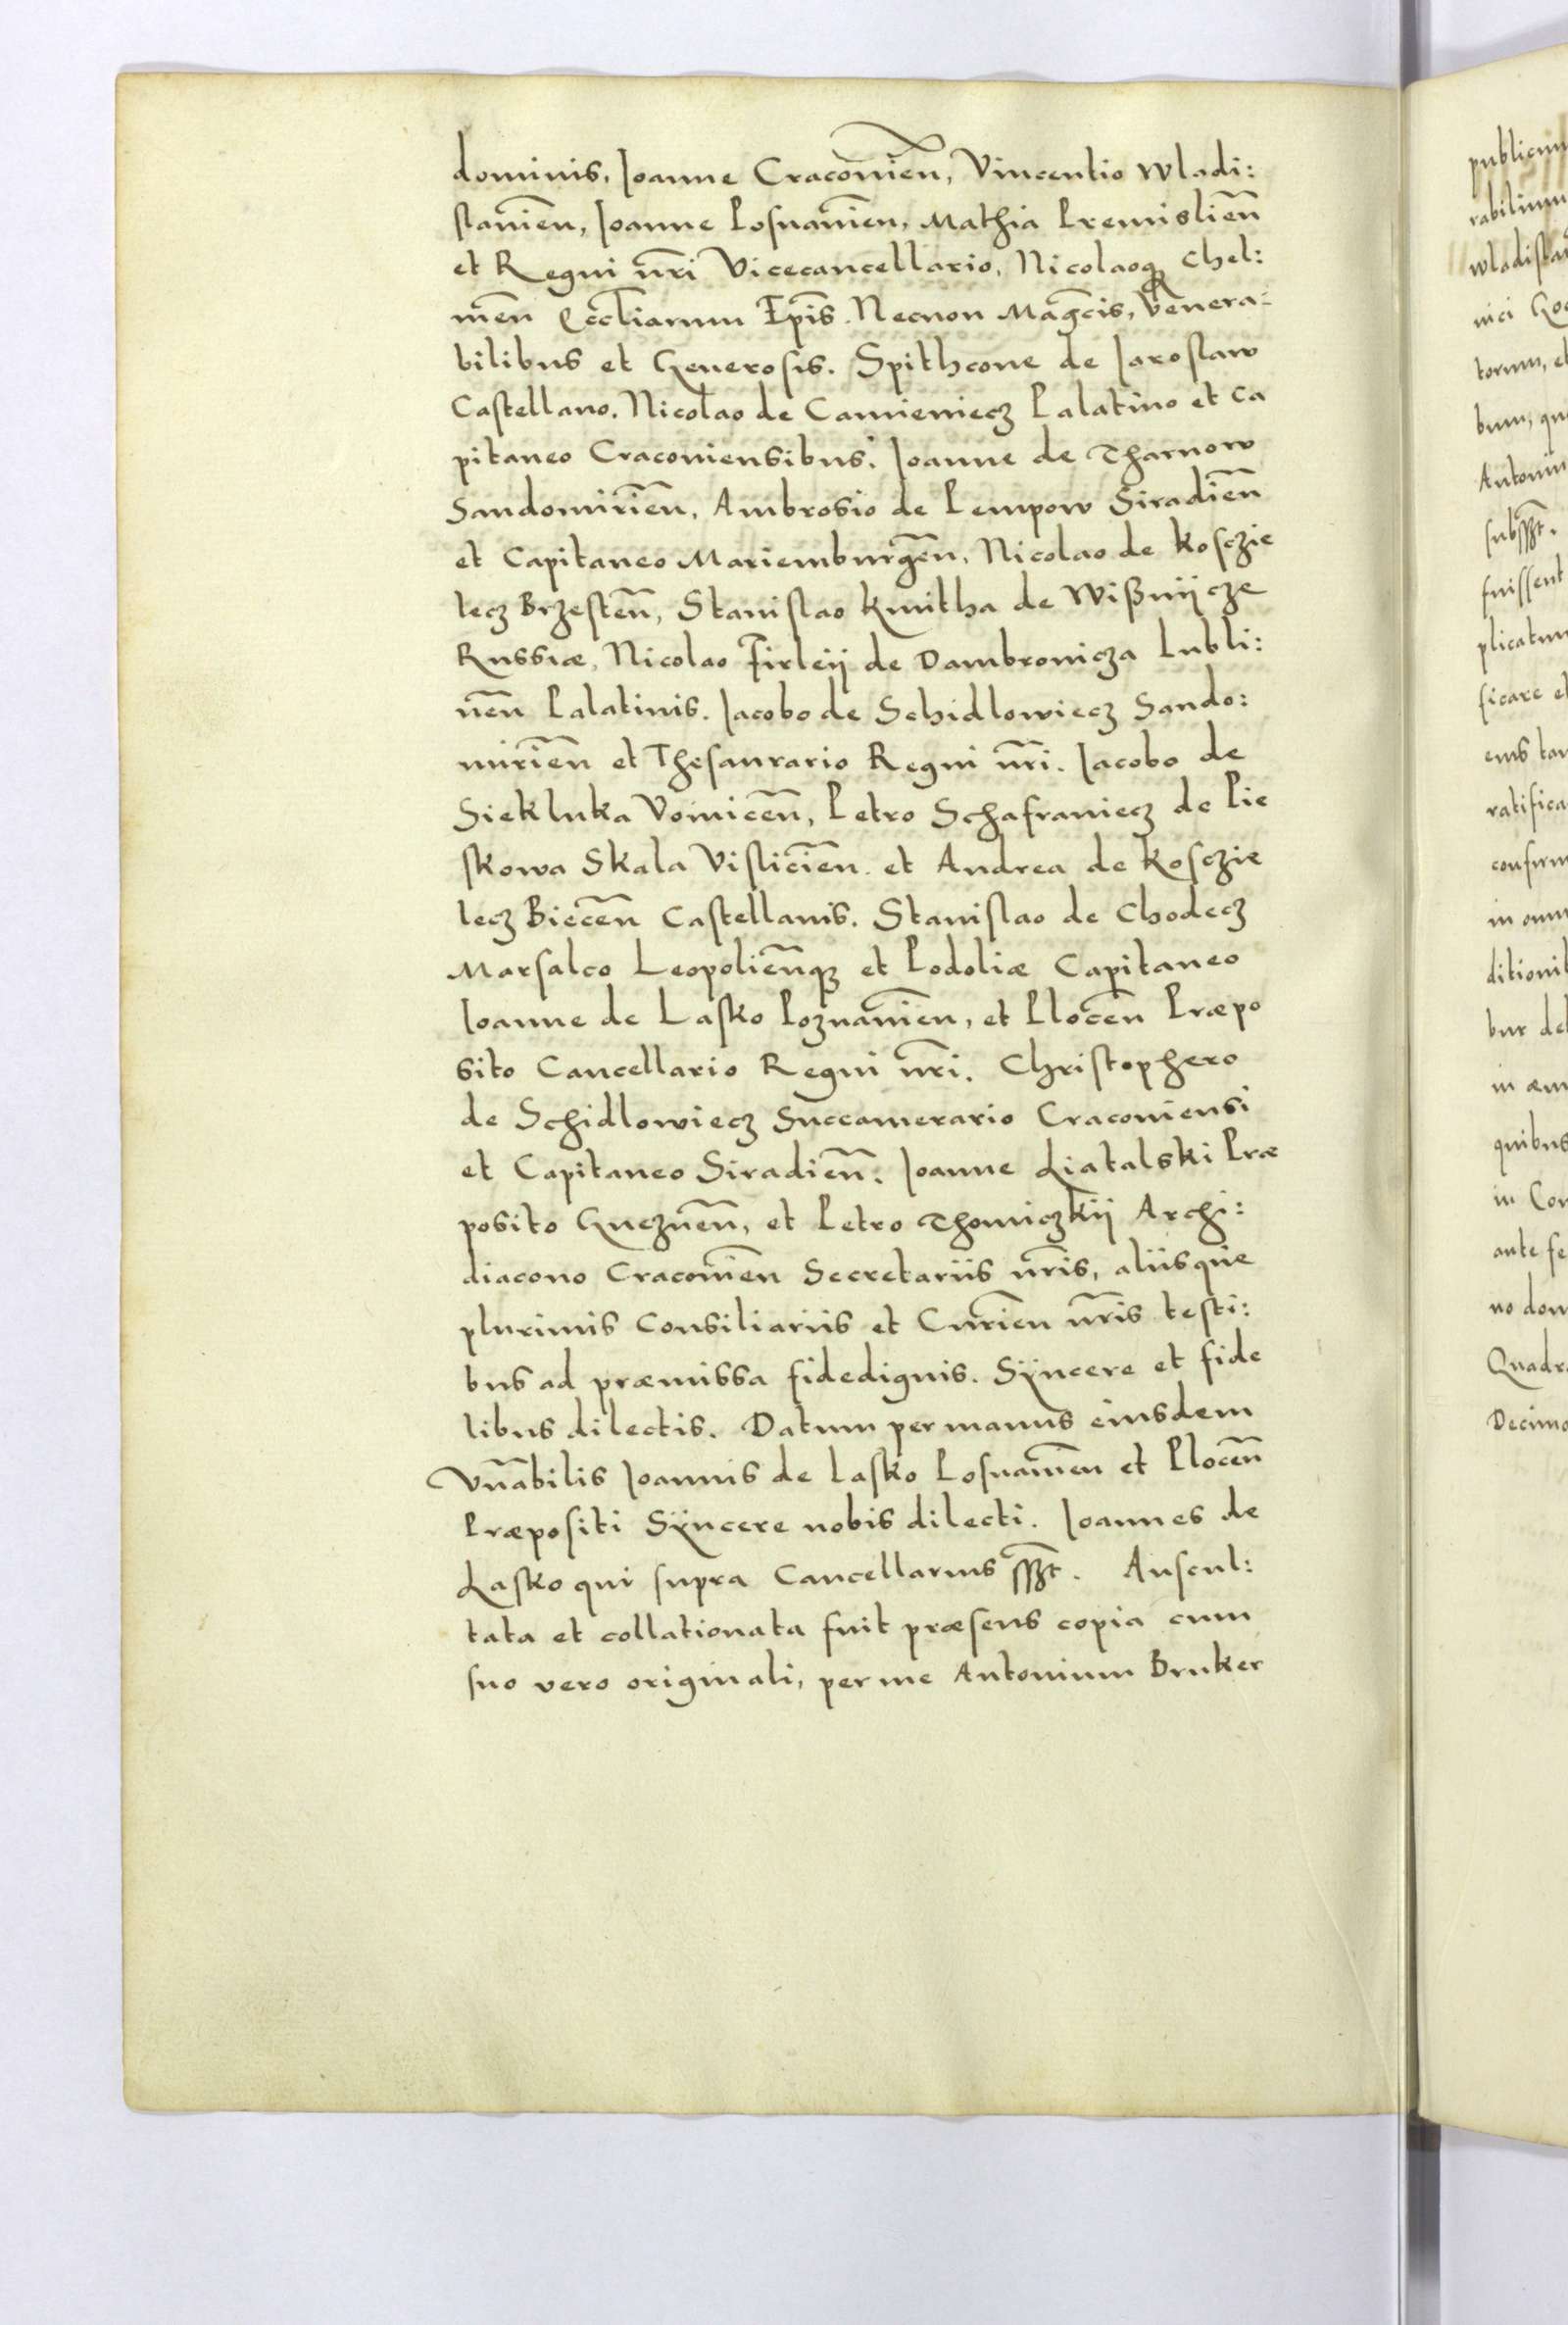 dominis, Ioanne Cracovien̄, Vincentio Wladi:
slavien̄, Ioanne Posnanien̄, Mathia Premislien̄
et Regni nr̄i Vicecancellario, Nicolaoq; Chel:
men̄ Eccl̄iarum Ep̄is. Necnon Magc̄is, Venera:
bilibus et Generosis. Spithcone de Iaroslaw
Castellano. Nicolao de Camieniecz Palatino et Ca
pitaneo Cracoviensibus. Ioanne de Tharnow
Sandomirien̄, Ambrosio de Pempow Siradien̄
et Capitaneo Mariemburgen̄, Nicolao de Kosczie
lecz Brzesten̄, Stanislao Kmitha de Wißnijcze
Russiæ, Nicolao Firleij de Dambrovicza Lubli:
nen̄ Palatinis. Iacobo de Schidlowiecz Sando:
mirien̄ et Thesaurario Regni nr̄i. Iacobo de
Siekluka Voinicen̄, Petro Schafraniecz de Pie
skowa Skala Vislicien̄ et Andrea de Kosczie
lecz Biecen̄ Castellanis. Stanislao de Chodecz
Marsalco Leopolien̄q; et Podoliæ Capitaneo
Ioanne de Lasko Poznanien̄, et Plocen̄ Præpo
sito Cancellario Regni nr̄i. Christophero
de Schidlowiecz Succamerario Cracoviensi
et Capitaneo Siradien̄. Ioanne Liatalski Præ
posito Gneznen̄, et Petro Thomiczkij Archi:
diacono Cracovien̄ Secretariis nr̄is, aliisque
plurimis Consiliariis et Curien̄ nr̄is testi:
bus ad præmissa fidedignis. Sÿncere et fide
libus dilectis. Datum per manus eiusdem
Vn̄abilis Ioannis de Lasko Posnanien̄ et Plocen̄
Præpositi Sÿncere nobis dilecti. Ioannes de
Lasko qui supra Cancellarius sszt. Auscul:
tata et collationata fuit præsens copia cum
suo vero originali, per me Antonium Bruker